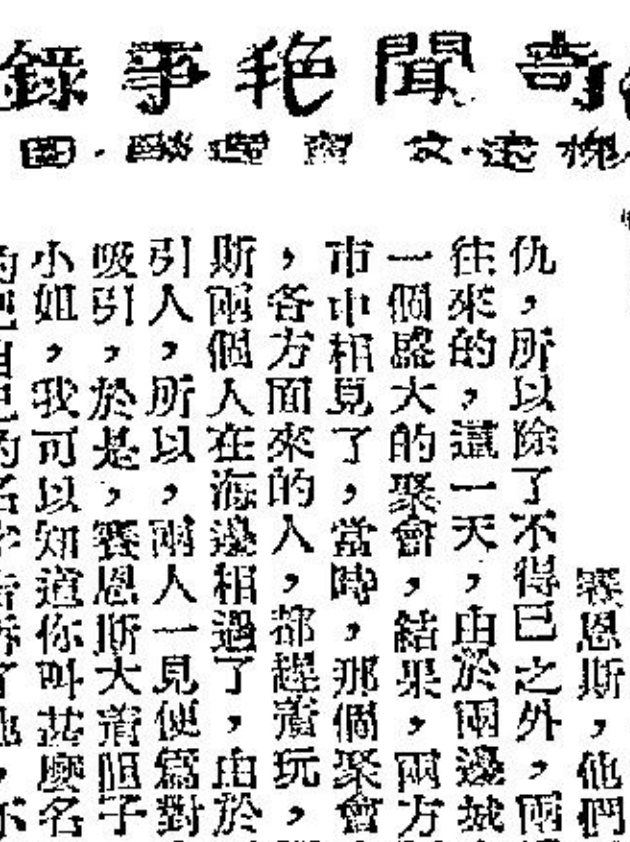 奇聞艷事錄
文 圖
賽恩斯，他們
仇，所以除了不得已之外，兩
往來的，這一天，由於兩邊城
一個盛大的聚會，結果，兩方
市中相見了，當時，那個聚會
，各方面來的人，都趕着玩，
斯兩個人在海邊相遇了，由於
引人，所以，兩人一見便為對
吸引，於是，賽恩斯大着胆子
小姐，我可以知道你叫甚麼名
自己的名字告訴了